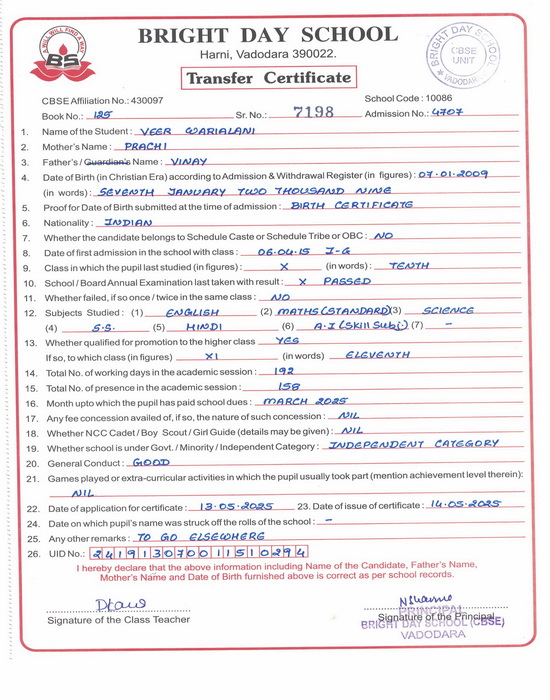 A WILL WILL FIND A WAY
BS
BRIGHT DAY SCHOOL
Harni, Vadodara 390022.
Transfer Certificate
BRIGHT DAY SCHOOL
CBSE
UNIT
VADODARA
CBSE Affiliation No.: 430097 School Code : 10086
Book No.: 125 Sr. No.: 7198 Admission No.: 4707
1. Name of the Student : VEER WARIALANI
2. Mother's Name : PRACHI
3. Father's / Guardian's Name : VINAY
4. Date of Birth (in Christian Era) according to Admission & Withdrawal Register (in figures) : 07-01-2009
(in words) : SEVENTH JANUARY TWO THOUSAND NINE
5. Proof for Date of Birth submitted at the time of admission : BIRTH CERTIFICATE
6. Nationality : INDIAN
7. Whether the candidate belongs to Schedule Caste or Schedule Tribe or OBC : NO
8. Date of first admission in the school with class : 06-04-15 I-G
9. Class in which the pupil last studied (in figures) : X (in words) : TENTH
10. School / Board Annual Examination last taken with result : X PASSED
11. Whether failed, if so once / twice in the same class : NO
12. Subjects Studied : (1) ENGLISH (2) MATHS (STANDARD) (3) SCIENCE
(4) S.S. (5) HINDI (6) A.I (Skill Subj.) (7) -
13. Whether qualified for promotion to the higher class YES
If so, to which class (in figures) XI (in words) ELEVENTH
14. Total No. of working days in the academic session : 192
15. Total No. of presence in the academic session : 158
16. Month upto which the pupil has paid school dues : MARCH 2025
17. Any fee concession availed of, if so, the nature of such concession : NIL
18. Whether NCC Cadet / Boy Scout / Girl Guide (details may be given) : NIL
19. Whether school is under Govt. / Minority / Independent Category : INDEPENDENT CATEGORY
20. General Conduct : GOOD
21. Games played or extra-curricular activities in which the pupil usually took part (mention achievement level therein):
NIL
22. Date of application for certificate : 13-05-2025 23. Date of issue of certificate : 14-05-2025
24. Date on which pupil's name was struck off the rolls of the school : -
25. Any other remarks : TO GO ELSEWHERE
26. UID No.: 241913070011510294
I hereby declare that the above information including Name of the Candidate, Father's Name,
Mother's Name and Date of Birth furnished above is correct as per school records.
Signature of the Class Teacher Signature of the Principal
PRINCIPAL
BRIGHT DAY SCHOOL (CBSE)
VADODARA